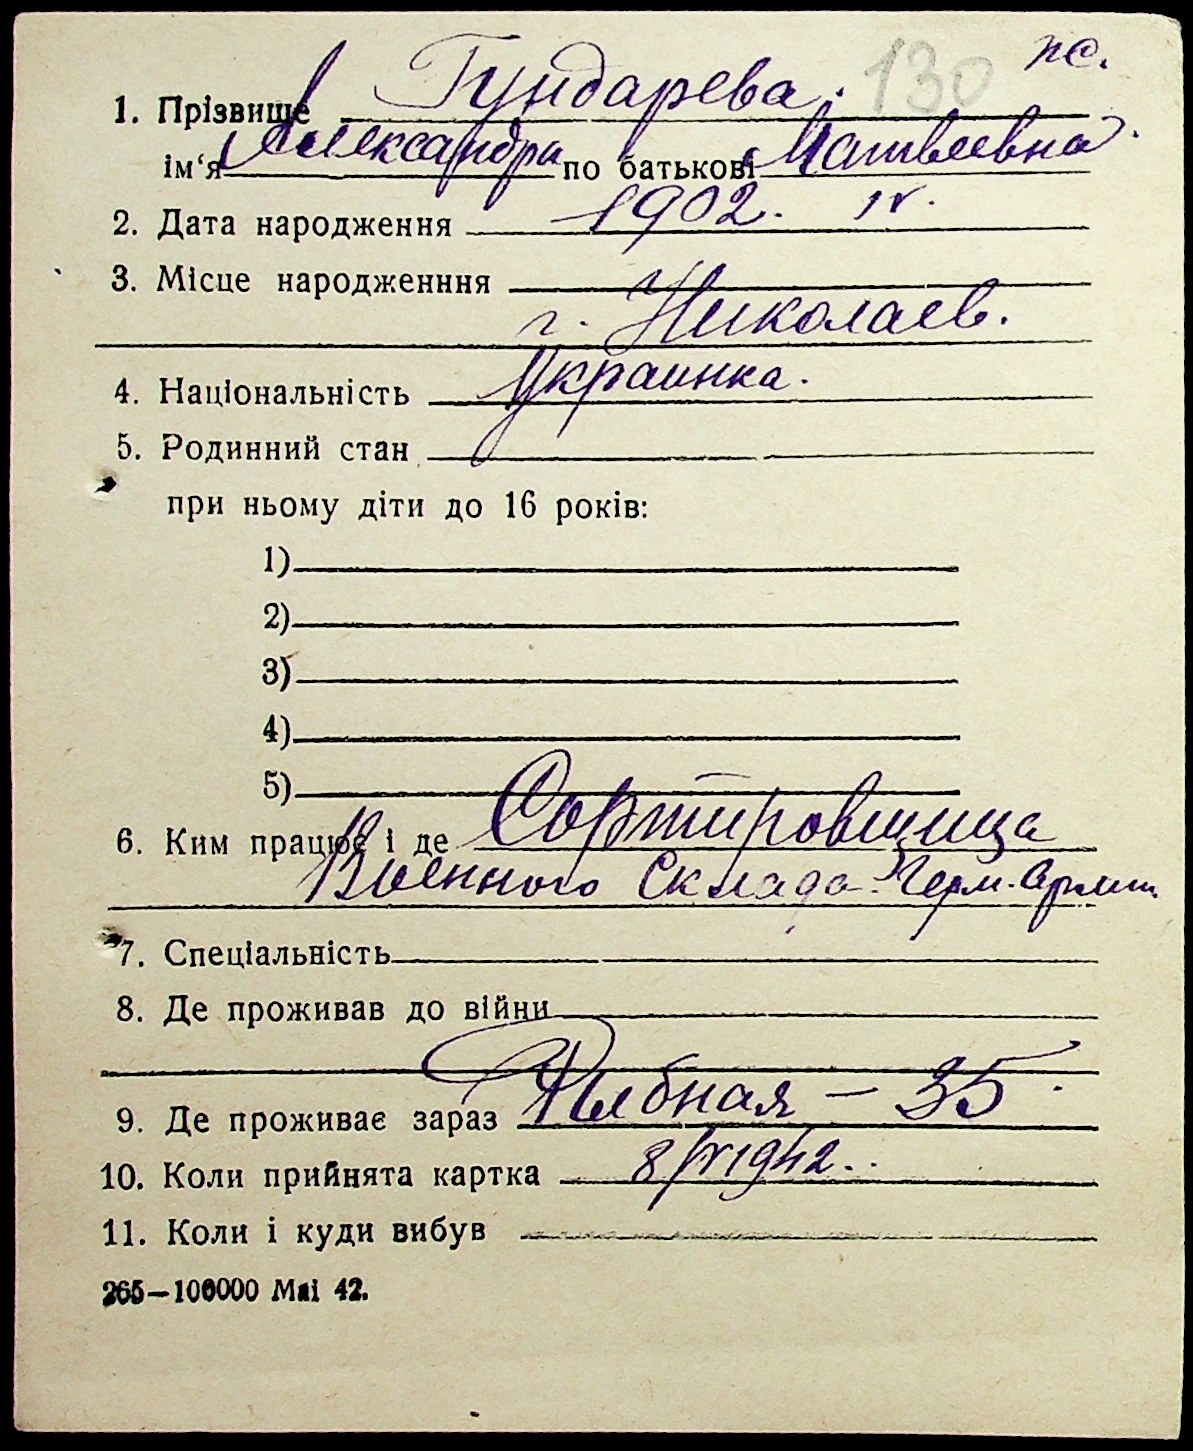 130 пс.
1. Прізвище Гундарева.
ім‘я Александра по батькові Матвеевна.
2. Дата народження 1902. г.
3. Місце народженння
г. Николаев.
4. Національність Украинка.
5. Родинний стан
при ньому діти до 16 років:
1)
2)
3)
4)
5)
6. Ким працює і де Сортировщица
Военного Склада Герм. Армии
7. Спеціальність
8. Де проживав до війни
9. Де проживає зараз – 35.
10. Коли прийнята картка 1942.
11. Коли і куди вибув
265—100000 Mai 42.